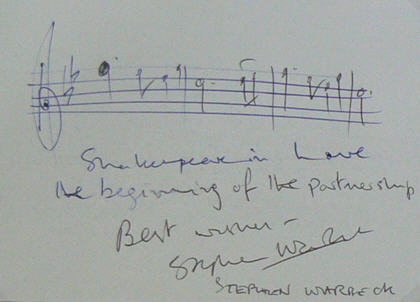 Shakespeare in Love
the beginning of the partnership
Best wishes -
Stephen Warbeck
STEPHEN WARBECK